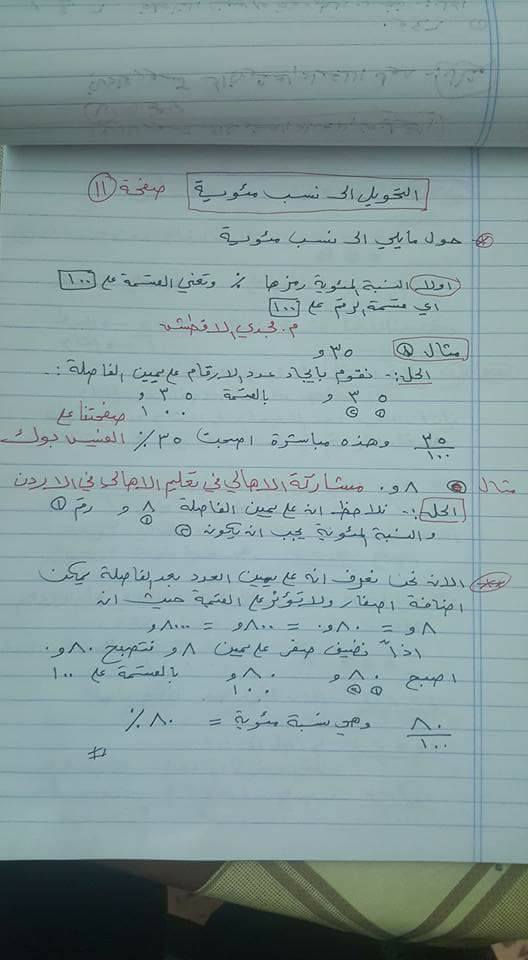 التحويل الى نسب مئوية صفحة ١١
* حول مايلي الى نسب مئوية
اولا النسبة المئوية رمزها ٪ وتعني القسمة على ١٠٠
اي قسمة الرقم على ١٠٠
م. مجدي الاقطش
مثال ١ ٣٥ و
الحل :- نقوم بايجاد عدد الارقام على يمين الفاصلة :.
٣٥ و بالقسمة ٣٥ و
١ ٢ ١٠٠ صفحتنا على
٣٥/١٠٠ وهذه مباشرة اصبحت ٣٥٪ الفيس بوك
مثال ٢ ٨ و. مشاركة الاهالي في تعليم الاهالي في الاردن
الحل :- نلاحظ ان على يمين الفاصلة ٨ و رقم ١
١
والنسبة المئوية يجب ان يكون ٢
** الان نحن نعرف انه على يمين العدد بعد الفاصلة يمكن
اضافة اصفار ولا تؤثر على القيمة حيث ان
٨ و = ٨٠ و. = ٨٠٠ و = ٨٠٠٠ و
اذاً نضيف صفر على يمين ٨ و فتصبح ٨٠ و.
اصبح ٨٠ و ٨٠ و بالقسمة على ١٠٠
١ ٢ ١٠٠
٨٠/١٠٠ وهي نسبة مئوية = ٨٠٪
#